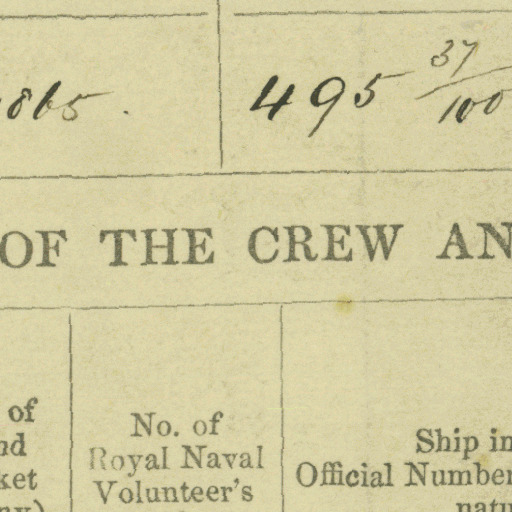 1865. 495 37/100
OF THE CREW AN
of
nd
ket
ny)
No. of
Royal Naval
Volunteer's
Ship in
Official Number
natu